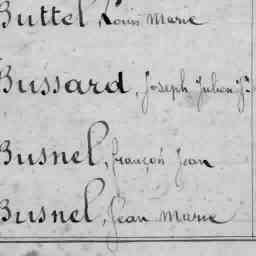 Buttel, Louis Marie
Bussard, Joseph Julien Jn
Busnel, françois Jean
Busnel, Jean Marie